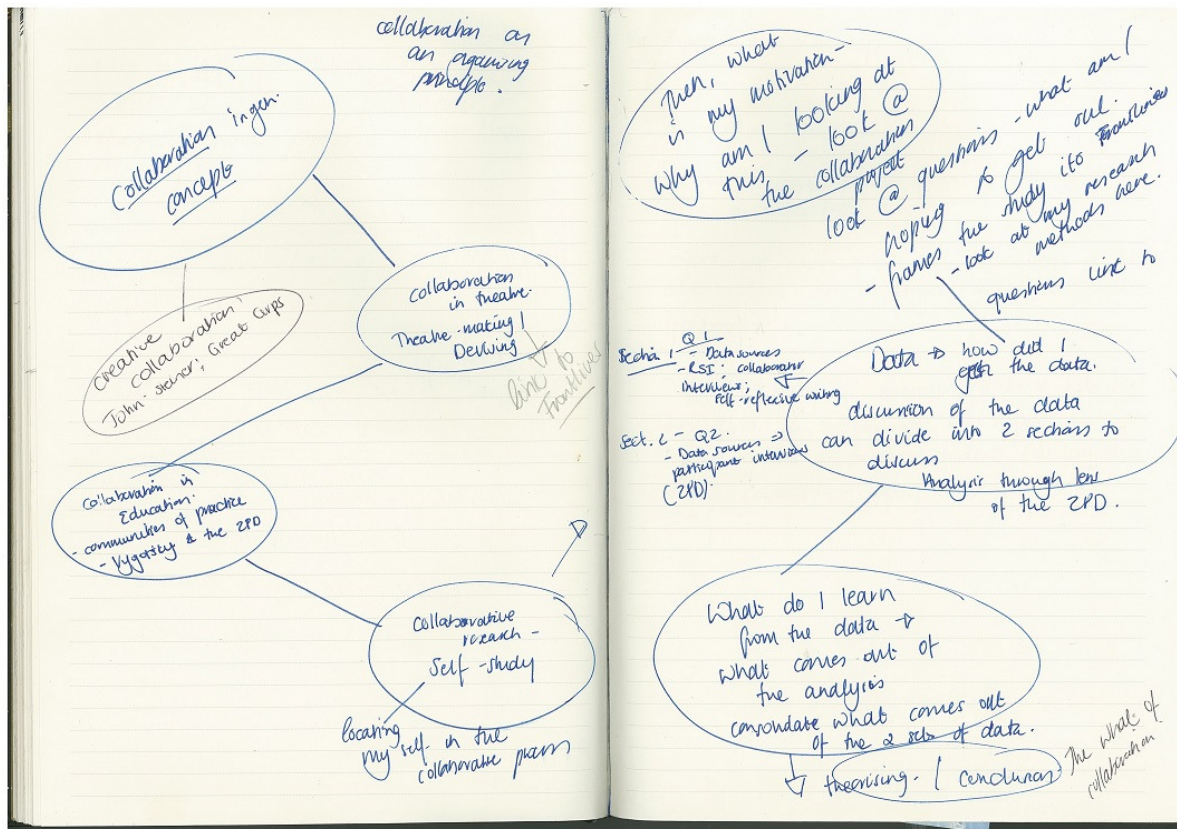 collaboration as
an organising
principle.
Collaboration in gen.
concept
Creative
collaboration:
John-Steiner; Great Groups
collaboration
in theatre.
Theatre-making /
Devising
link to
Frontlines
Collaboration in
Education.
- communities of practice
- Vygotsky & the ZPD
Collaborative
research -
Self-study
locating
my self in the
collaborative process
Then, what
is my motivation -
why am I looking at
this - look @
the collaboration
project
look @ questions - what am I
hoping to get out.
- frames the study ito Frontlines
- look at my research
methods here.
questions link to
Section 1 Q1
- Data sources
- RSI; collaborator
interviews;
self-reflexive writing
Sect. 2 - Q2.
- Data sources ⇒
participant interviews
(ZPD).
Data → how did I
get the data.
discussion of the data
can divide into 2 sections to
discuss
Analysis through lens
of the ZPD.
What do I learn
from the data →
what comes out of
the analysis
consolidate what comes out
of the 2 sets of data.
theorising - / Conclusions
The what of
collaboration